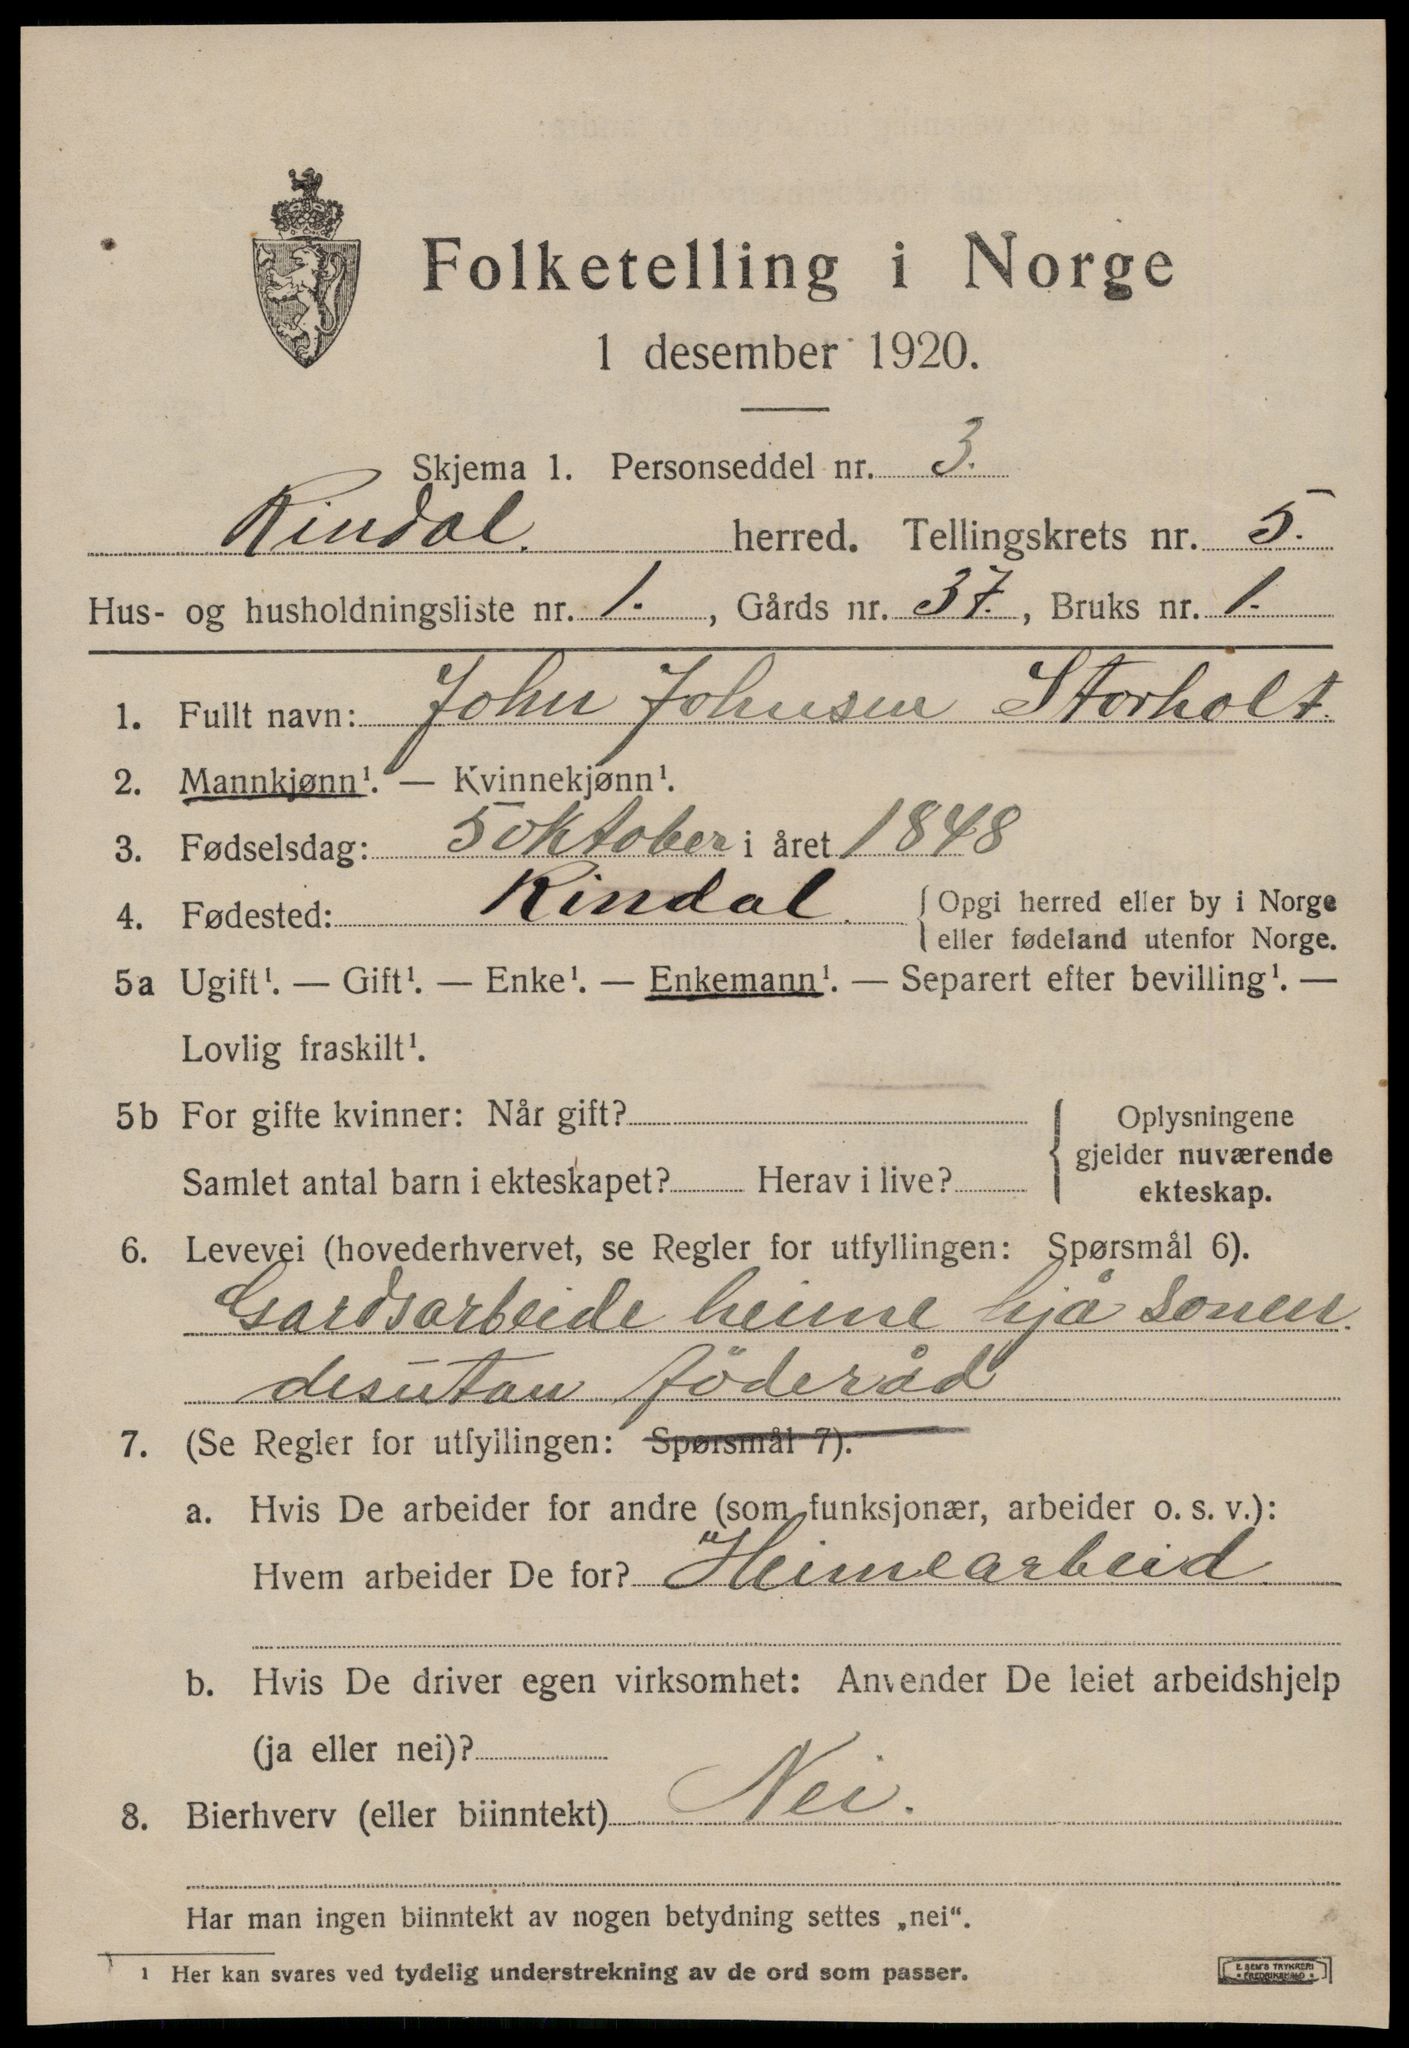 Folketelling i Norge
1 desember 1920.
Skjema 1. Personseddel nr. 3.
Rindal. herred. Tellingskrets nr. 5.
Hus- og husholdningsliste nr. 1., Gårds nr. 37., Bruks nr. 1.
1. Fullt navn: John Johnsen Storholt.
2. Mannkjønn¹. — Kvinnekjønn¹.
3. Fødselsdag: 5 oktober i året 1848
4. Fødested: Rindal. { Opgi herred eller by i Norge
eller fødeland utenfor Norge.
5a Ugift¹. — Gift¹. — Enke¹. — Enkemann¹. — Separert efter bevilling¹. —
Lovlig fraskilt¹.
5b For gifte kvinner: Når gift? { Oplysningene
gjelder nuværende
Samlet antal barn i ekteskapet? Herav i live? ekteskap.
6. Levevei (hovederhvervet, se Regler for utfyllingen: Spørsmål 6).
Gardsarbeide heime hjå sonen.
desutan föderåd
7. (Se Regler for utfyllingen: Spørsmål 7).
a. Hvis De arbeider for andre (som funksjonær, arbeider o. s. v.):
Hvem arbeider De for? Heimearbeid
b. Hvis De driver egen virksomhet: Anvender De leiet arbeidshjelp
(ja eller nei)?
8. Bierhverv (eller biinntekt) Nei.
Har man ingen biinntekt av nogen betydning settes „nei“.
¹ Her kan svares ved tydelig understrekning av de ord som passer.
E. SEM'S TRYKKERI
FREDRIKSHALD